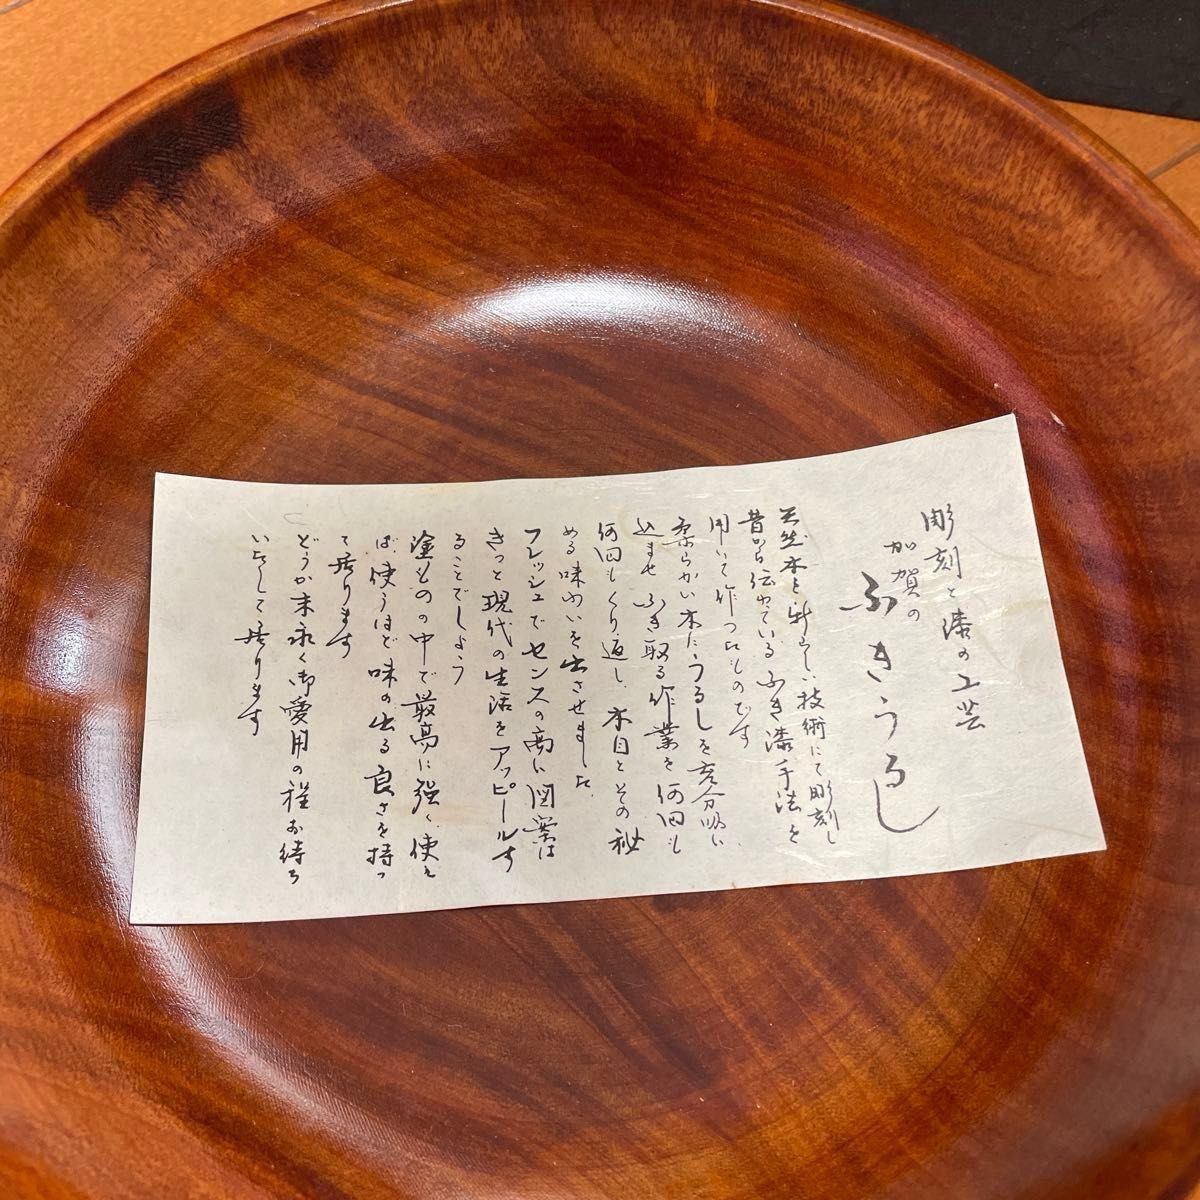 彫刻と漆の工芸
加賀の
ふきうるし
天然木を新しい技術にて彫刻し
昔から伝わっているふき漆手法を
用いて作ったものです
柔らかい木にうるしを充分吸い
込ませ ふき取る作業を何回も
何回もくり返し、木目とその秘
める味わいを出させました。
フレッシュでセンスの高い図案は
きっと現代の生活をアッピールす
ることでしよう
塗ものの中で最高に強く、使え
ば、使うほど味の出る良さを持っ
て居ります
どうか末永く御愛用の程お待ち
いたして居ります